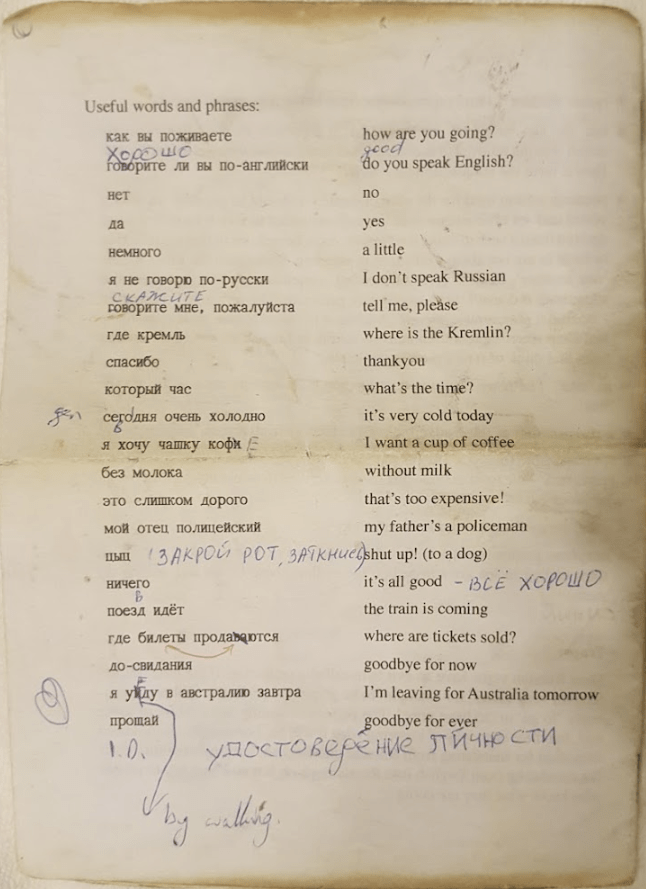 Useful words and phrases:
как вы поживаете how are you going?
ХОРОШО good
говорите ли вы по-английски do you speak English?
нет no
да yes
немного a little
я не говорю по-русски I don't speak Russian
СКАЖИТЕ
говорите мне, пожалуйста tell me, please
где кремль where is the Kremlin?
спасибо thankyou
который час what's the time?
сегодня очень холодно it's very cold today
в
я хочу чашку кофи Е I want a cup of coffee
без молока without milk
это слишком дорого that's too expensive!
мой отец полицейский my father's a policeman
цыц (ЗАКРОЙ РОТ, ЗАТКНИСЬ) shut up! (to a dog)
ничего it's all good - ВСЁ ХОРОШО
в
поезд идёт the train is coming
где билеты продаваются where are tickets sold?
до-свидания goodbye for now
я уйду в австралию завтра I'm leaving for Australia tomorrow
прощай goodbye for ever
I.D. УДОСТОВЕРЕНИЕ ЛИЧНОСТИ
by walking.